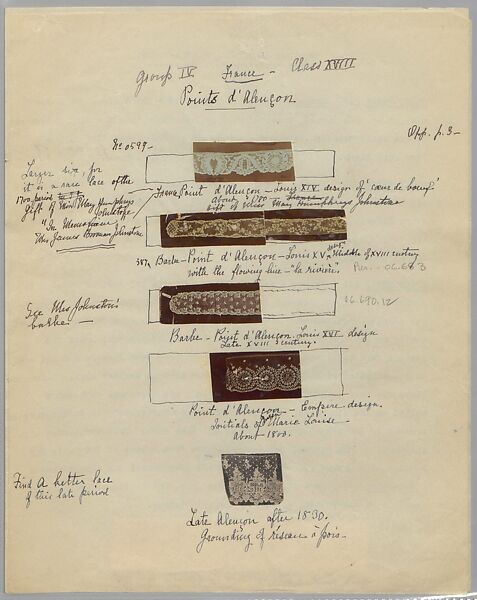 Group IV France - Class XVIII
Points d'Alençon
Opp. p. 3-
No 0599-
Larger size for
it is a rare lace of the
1700 period
Gift of Miss Mary Humphreys
Johnstone
"In Memoriam"
Mrs James Boorman Johnstone
France Point d'Alençon - Louis XIV design of 'cœur de boeuf'
about 1700
Gift of Miss Mary Humphreys Johnstone
387. Barbe - Point d'Alençon - Louis XV design Middle of XVIII century
with the flowing line - "la rivière"
06.693
See Mrs Johnston's
barbe
06.690.12
Barbe - Point d'Alençon. Louis XVI design
Late XVIII century.
Point d'Alençon - Empire design.
Initials of Marie Louise
About 1800.
Find A better lace
of this late period
Late Alençon after 1830.
Grounding of réseau à pois-